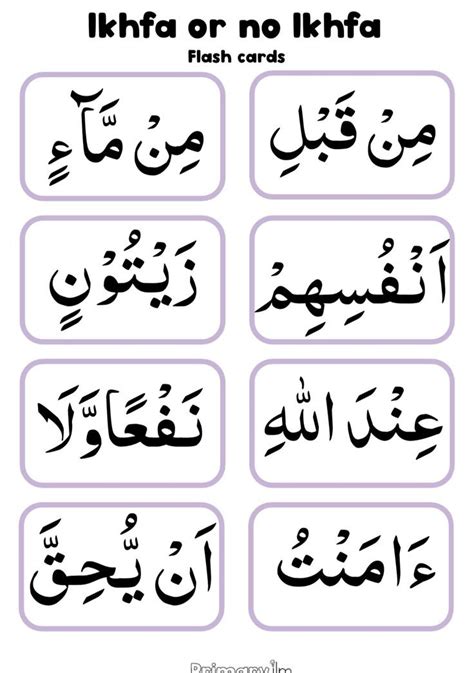 Ikhfa or no Ikhfa
Flash cards
مِنْ قَبْلِ
مِنْ مَّآءٍ
اَنْفُسِهِمْ
زَيْتُوْنٍ
عِنْدَ اللهِ
نَفْعًاوَّلَا
ءَامَنْتُ
اَنْ يُّحِقَّ